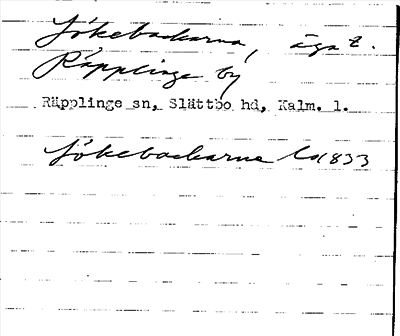 Jökebackarna, äga t.
Räpplinge by
Räpplinge sn, Slättbo hd, Kalm. l.
Jökebackarne Ls 1833